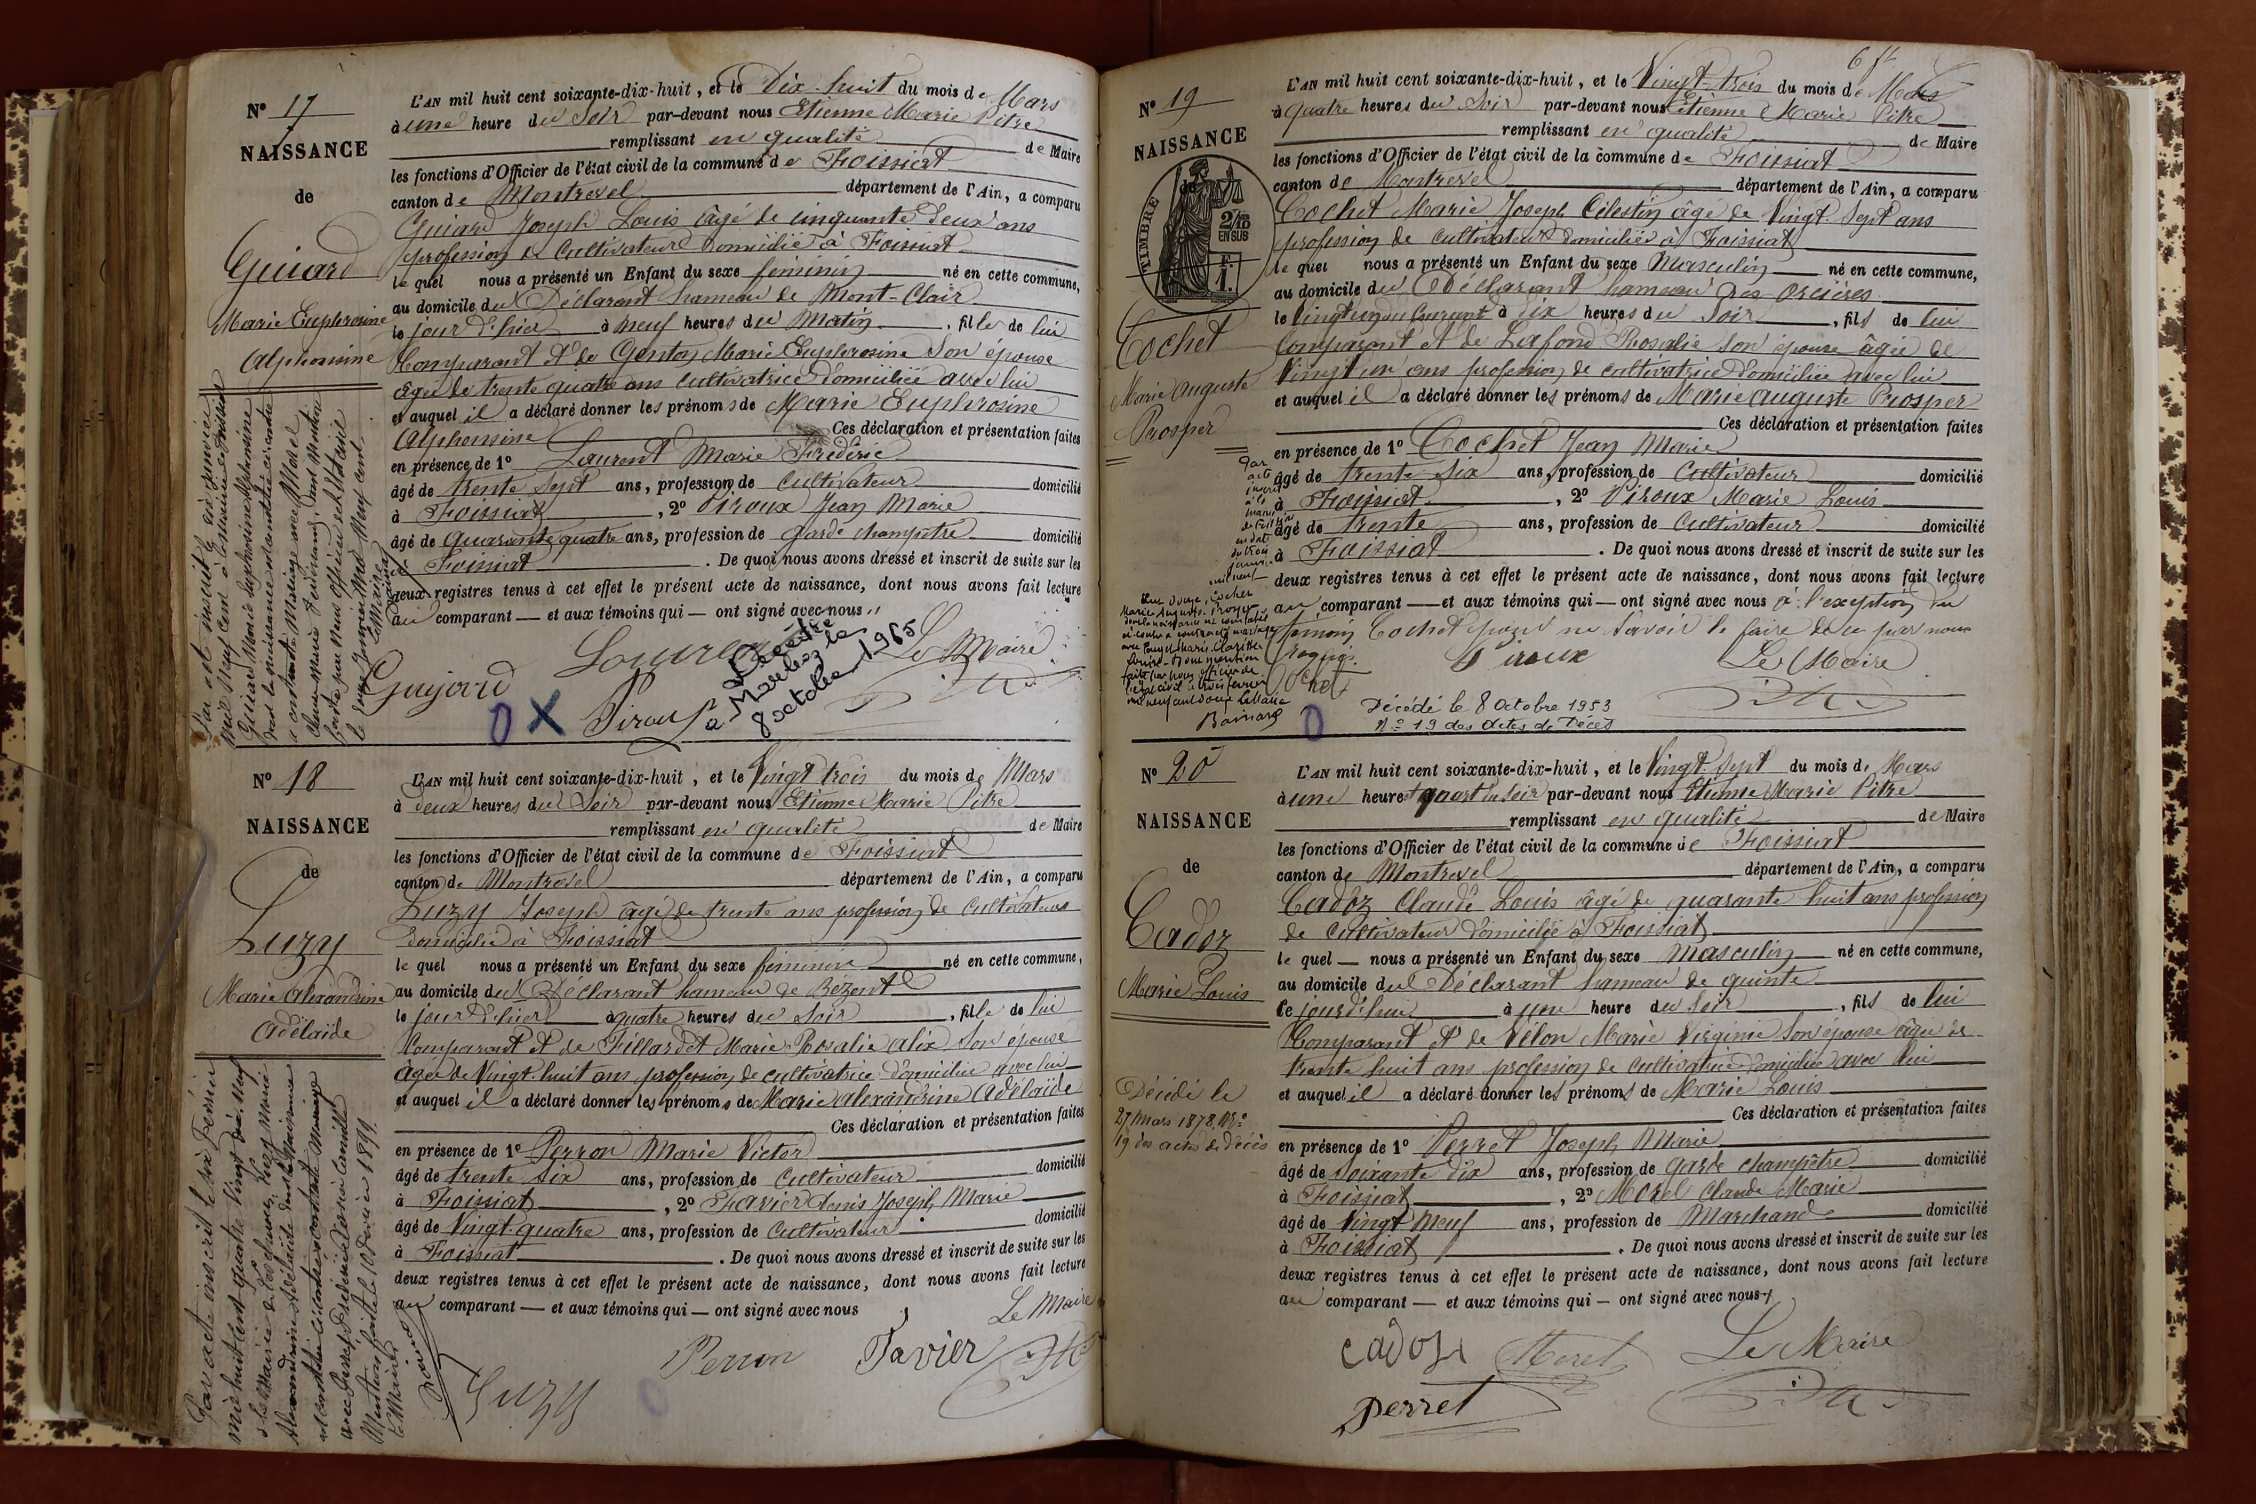 N° 17
NAISSANCE
de
Guiard
Marie Euphrosine
Alphonsine
L'AN mil huit cent soixante-dix-huit, et le Dix-huit du mois de Mars
à une heure du Soir par-devant nous Etienne Marie Pitre
remplissant en qualité de Maire
les fonctions d'Officier de l'état civil de la commune de Foissiat
canton de Montrevel département de l'Ain, a comparu
Guiard Joseph Louis âgé de cinquante deux ans
profession de Cultivateur domicilié à Foissiat
le quel nous a présenté un Enfant du sexe féminin né en cette commune,
au domicile du Déclarant hameau de Mont-Clair
le jour d'hier à neuf heures du Matin, fille de lui
Comparant et de Genton Marie Euphrosine son épouse
âgée de trente quatre ans cultivatrice domiciliée avec lui
et auquel il a déclaré donner les prénoms de Marie Euphrosine
Alphonsine Ces déclaration et présentation faites
en présence de 1° Laurent Marie Frédéric
âgé de trente sept ans, profession de Cultivateur domicilié
à Foissiat, 2° Piroux Jean Marie
âgé de quarante quatre ans, profession de garde champêtre domicilié
à Foissiat. De quoi nous avons dressé et inscrit de suite sur les
deux registres tenus à cet effet le présent acte de naissance, dont nous avons fait lecture
au comparant — et aux témoins qui — ont signé avec nous
Laurent
Le Maire
Guyard
Piroux
Décédée
à Marboz le
8 octobre 1965
N° 18
NAISSANCE
de
Luzy
Marie Alexandrine
Adélaïde
L'AN mil huit cent soixante-dix-huit, et le Vingt trois du mois de Mars
à deux heures du Soir par-devant nous Etienne Marie Pitre
remplissant en qualité de Maire
les fonctions d'Officier de l'état civil de la commune de Foissiat
canton de Montrevel département de l'Ain, a comparu
Luzy Joseph âgé de trente ans profession de Cultivateur
domicilié à Foissiat
le quel nous a présenté un Enfant du sexe féminin né en cette commune,
au domicile du Déclarant hameau de Bézent
le jour d'hier à quatre heures du Soir, fille de lui
Comparant et de Fillardet Marie Rosalie Alix son épouse
âgée de Vingt huit ans profession de cultivatrice domiciliée avec lui
et auquel il a déclaré donner les prénoms de Marie Alexandrine Adélaïde
Ces déclaration et présentation faites
en présence de 1° Perron Marie Victor
âgé de trente six ans, profession de Cultivateur domicilié
à Foissiat, 2° Favier Denis Joseph Marie
âgé de Vingt-quatre ans, profession de Cultivateur domicilié
à Foissiat. De quoi nous avons dressé et inscrit de suite sur les
deux registres tenus à cet effet le présent acte de naissance, dont nous avons fait lecture
au comparant — et aux témoins qui — ont signé avec nous
Le Maire
Perron Favier
Luzy
N° 19
NAISSANCE
de
TIMBRE
2/10
EN SUS
F.
1.
Cochet
Marie Auguste
Prosper
L'AN mil huit cent soixante-dix-huit, et le Vingt-trois du mois de Mars
à quatre heures du Soir par-devant nous Etienne Marie Pitre
remplissant en qualité de Maire
les fonctions d'Officier de l'état civil de la commune de Foissiat
canton de Montrevel département de l'Ain, a comparu
Cochet Marie Joseph Célestin âgé de Vingt-Sept ans
profession de cultivateur domicilié à Foissiat
le quel nous a présenté un Enfant du sexe Masculin né en cette commune,
au domicile du Déclarant hameau des Orcières
le Vingt un du Courant à dix heures du Soir, fils de lui
Comparant et de Lafond Rosalie son épouse âgée de
Vingt un ans profession de cultivatrice domiciliée avec lui
et auquel il a déclaré donner les prénoms de Marie Auguste Prosper
Ces déclaration et présentation faites
en présence de 1° Cochet Jean Marie
âgé de trente-six ans, profession de Cultivateur domicilié
à Foissiat, 2° Piroux Marie Louis
âgé de trente ans, profession de Cultivateur domicilié
à Foissiat. De quoi nous avons dressé et inscrit de suite sur les
deux registres tenus à cet effet le présent acte de naissance, dont nous avons fait lecture
au comparant — et aux témoins qui — ont signé avec nous à l'exception du
témoin Cochet pour ne savoir le faire de ce par nous
requis.
Piroux Le Maire
Cochet
Décédé le 8 Octobre 1953
N° 19 des Actes de Décès
N° 20
NAISSANCE
de
Cadoz
Marie Louis
Décédé le
27 Mars 1878, N°
19 des actes de Décès
L'AN mil huit cent soixante-dix-huit, et le Vingt-Sept du mois de Mars
à une heure quart du Soir par-devant nous Etienne Marie Pitre
remplissant en qualité de Maire
les fonctions d'Officier de l'état civil de la commune de Foissiat
canton de Montrevel département de l'Ain, a comparu
Cadoz Claude Louis âgé de quarante huit ans profession
de cultivateur domicilié à Foissiat
le quel — nous a présenté un Enfant du sexe Masculin né en cette commune,
au domicile du Déclarant hameau de quinte
le jourd'hui à une heure du Soir, fils de lui
Comparant et de Vélon Marie Virginie son épouse âgée de
trente huit ans profession de cultivatrice domiciliée avec lui
et auquel il a déclaré donner les prénoms de Marie Louis
Ces déclaration et présentation faites
en présence de 1° Perret Joseph Marie
âgé de soixante dix ans, profession de garde champêtre domicilié
à Foissiat, 2° Morel Claude Marie
âgé de Vingt neuf ans, profession de Marchand domicilié
à Foissiat. De quoi nous avons dressé et inscrit de suite sur les
deux registres tenus à cet effet le présent acte de naissance, dont nous avons fait lecture
au comparant — et aux témoins qui — ont signé avec nous
Cadoz Morel Le Maire
Perret